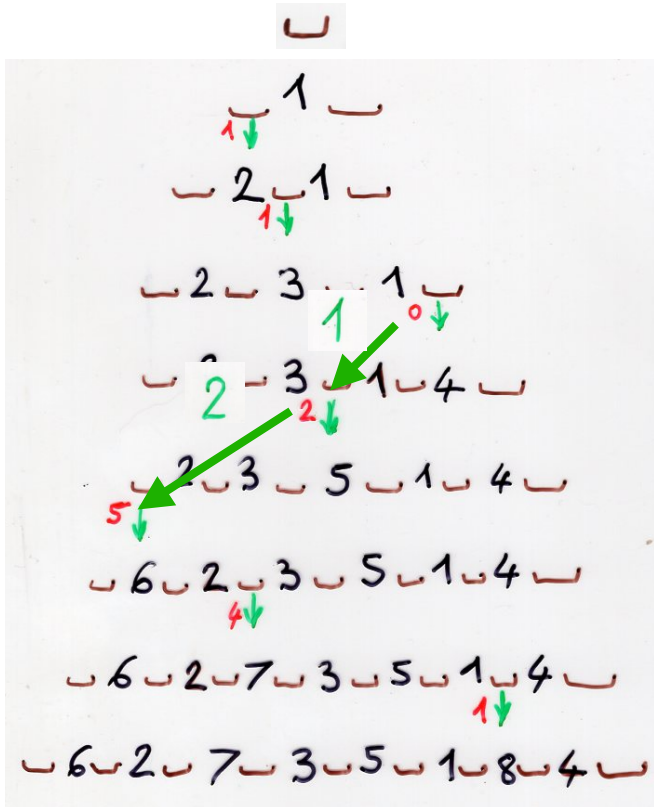 ␣
␣ 1 ␣
1 ↓
␣ 2 ␣ 1 ␣
1 ↓
␣ 2 ␣ 3 ␣ 1 ␣
1 0 ↓
␣ 2 ␣ 3 ␣ 1 ␣ 4 ␣
2 ↓
␣ 2 ␣ 3 ␣ 5 ␣ 1 ␣ 4 ␣
5 ↓
␣ 6 ␣ 2 ␣ 3 ␣ 5 ␣ 1 ␣ 4 ␣
4 ↓
␣ 6 ␣ 2 ␣ 7 ␣ 3 ␣ 5 ␣ 1 ␣ 4 ␣
1 ↓
␣ 6 ␣ 2 ␣ 7 ␣ 3 ␣ 5 ␣ 1 ␣ 8 ␣ 4 ␣